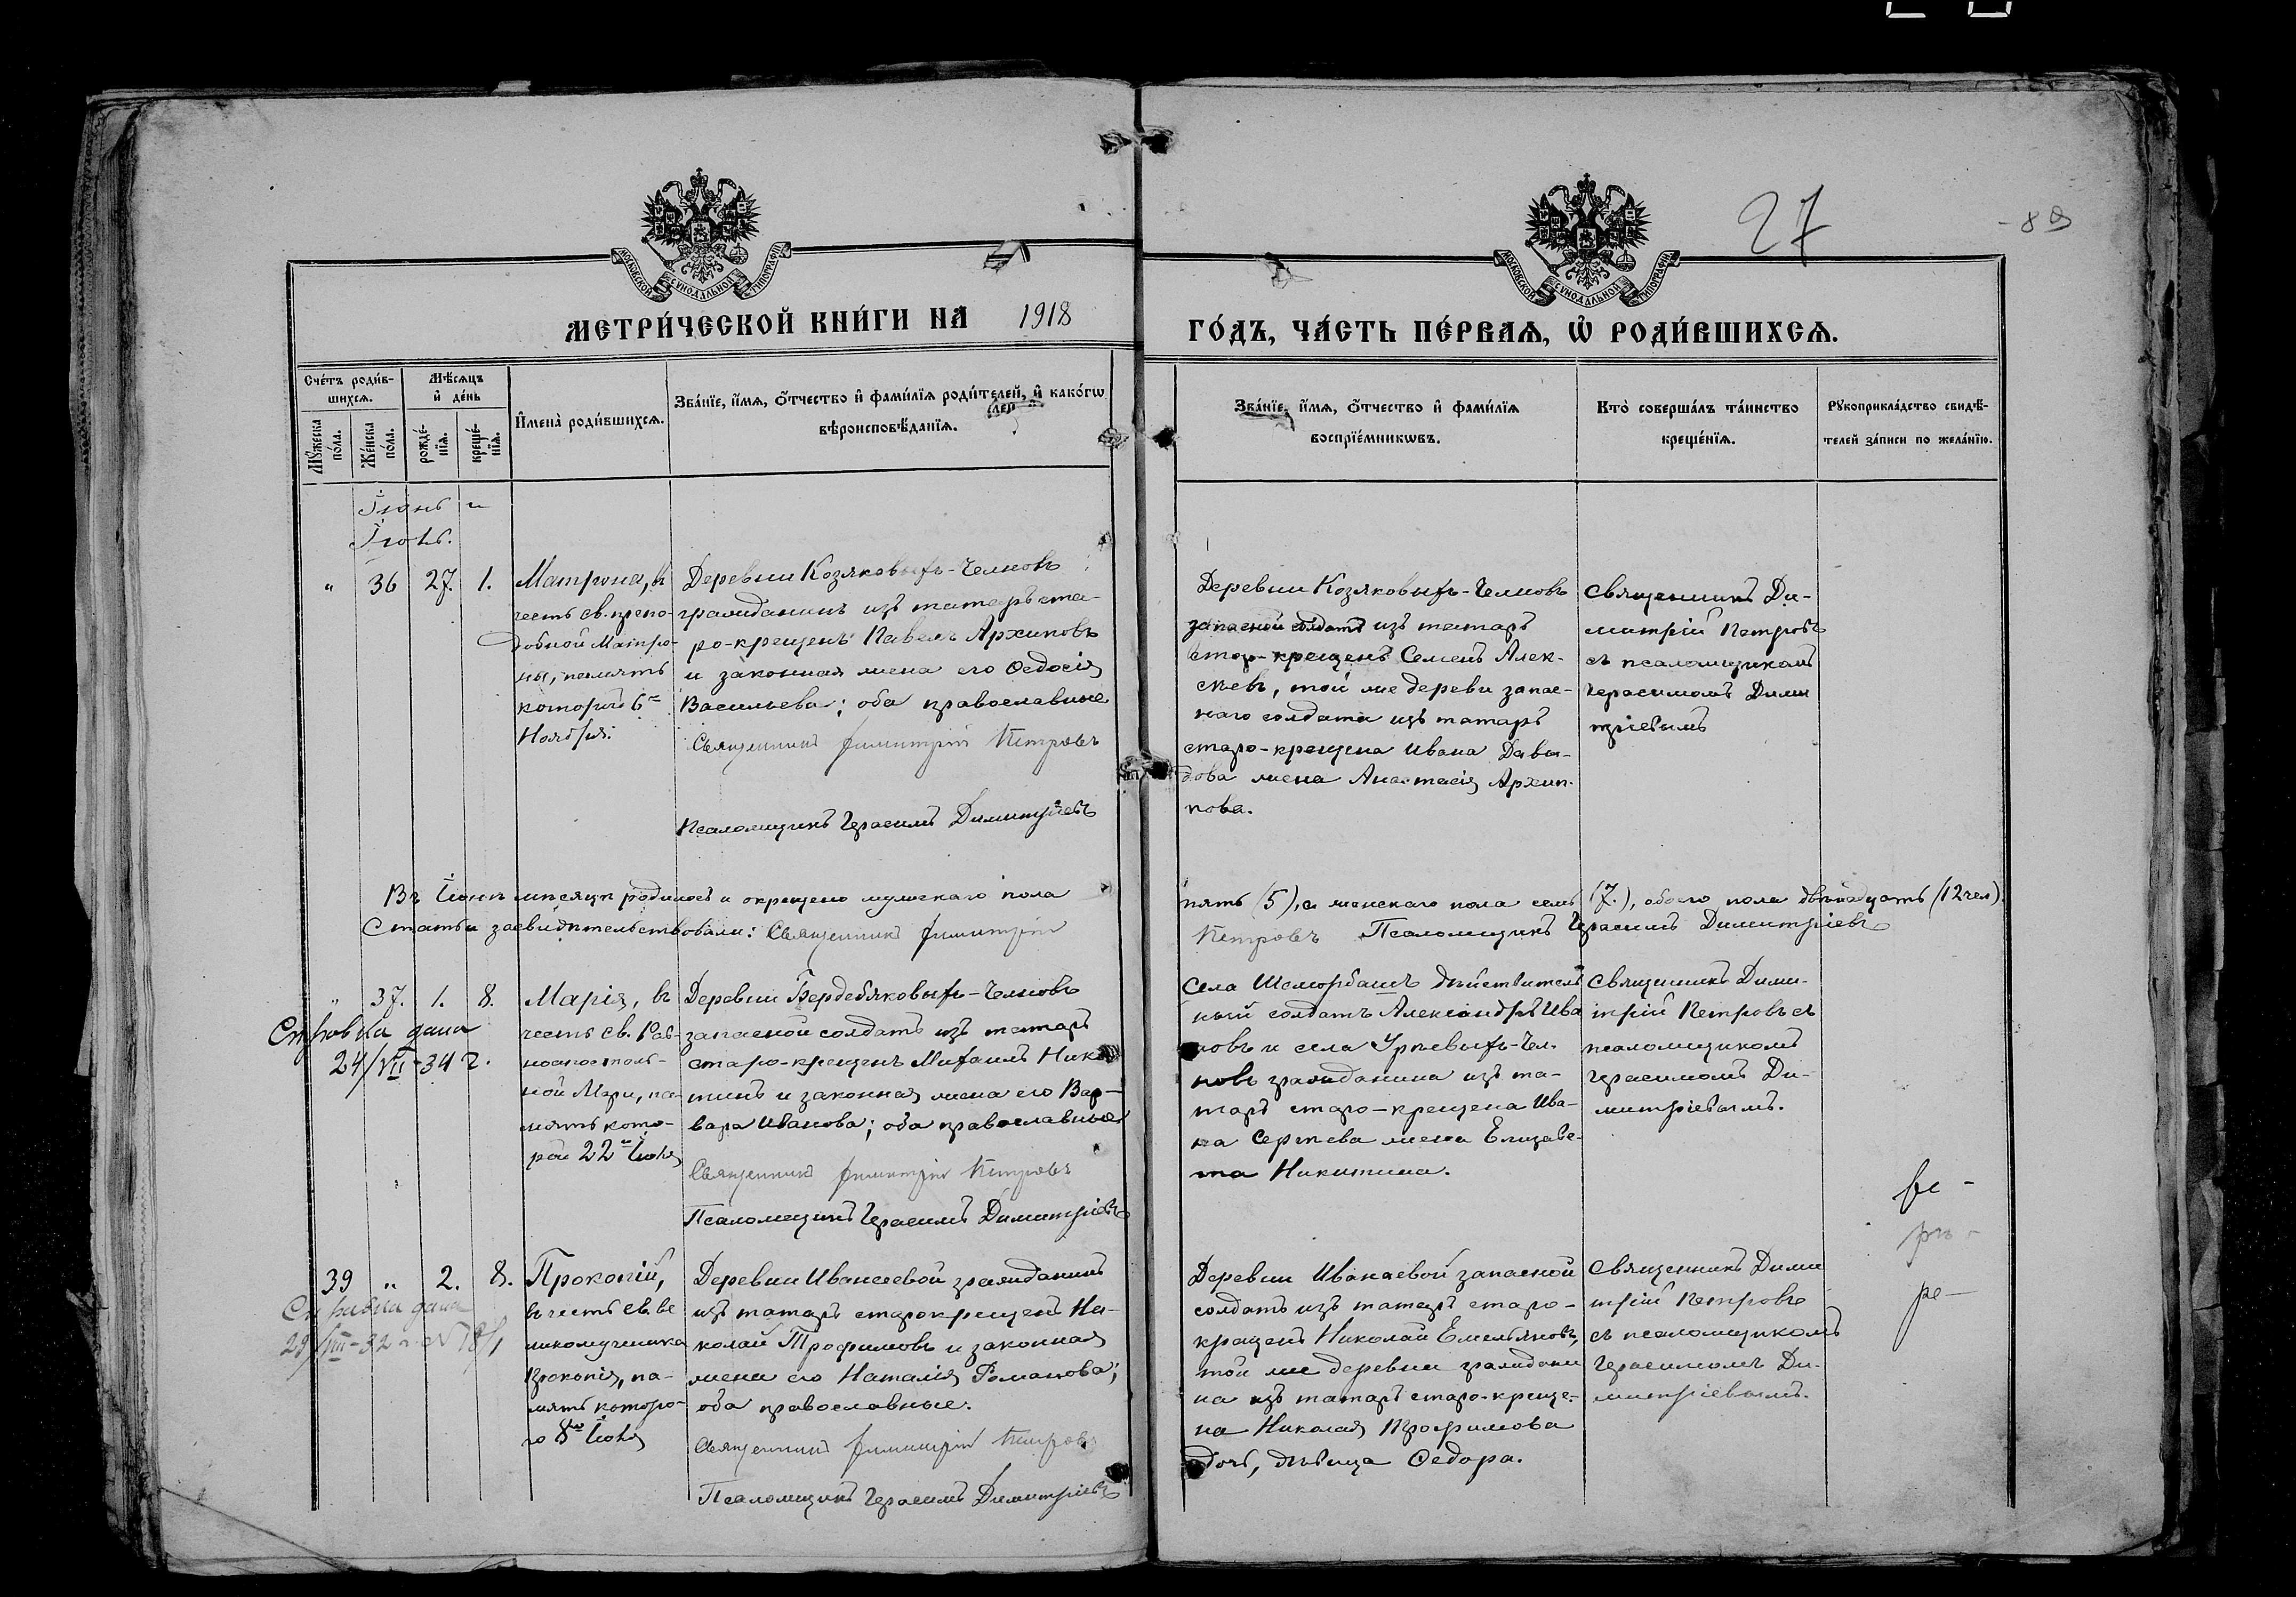 27
- 89
МОСКОВСКОЙ СѴНОДАЛЬНОЙ ТИПОГРАФІИ
МОСКОВСКОЙ СѴНОДАЛЬНОЙ ТИПОГРАФІИ
МЕТРИ́ЧЕСКОЙ КНИ́ГИ НА 1918
ГО́ДЪ, ЧА́СТЬ ПЕ́РВАѦ, Ѡ҆ РОДИ́ВШИХСѦ.
Сче́тъ роди́в-
шихсѧ.
Мѣ́сѧцъ
и҆ де́нь
Мꙋ́жеска
по́ла.
Же́нска
по́ла.
рожде́-
нїѧ.
креще́-
нїѧ.
И҆мена̀ роди́вшихсѧ.
Зва́нїе, и҆́мѧ, ѻ҆́тчество и҆ фами́лїѧ роди́телей, и҆ како́гѡ
вѣроисповѣ́данїѧ.
Зва́нїе, и҆́мѧ, ѻ҆́тчество и҆ фами́лїѧ
воспрїе́мникѡвъ.
Кто̀ соверша́лъ та́инство
креще́нїѧ.
Рꙋкоприкла́дство свидѣ́-
телей за́писи по жела́нїю.
Іюнь и
Іюль.
" 36 27. 1.
Матрона, въ
честь св. препо-
добной Матро-
ны, память
которой 6го
Ноября.
Деревни Козяковыхъ-Челновъ
гражданинъ изъ татаръ ста-
ро-крещенъ Павелъ Архиповъ
и законная жена его Ѳедосія
Васильева; оба православные
Священникъ Димитрій Петровъ
Псаломщикъ Герасимъ Димитріевъ
Деревни Козяковыхъ-Челновъ
запасной солдатъ изъ татаръ
старо-крещенъ Семенъ Алек-
сѣевъ, той же деревни запас-
наго солдата изъ татаръ
старо-крещена Ивана Давы-
дова жена Анастасія Архип-
пова.
Священникъ Ди-
митрій Петровъ
съ псаломщикомъ
Герасимомъ Дими
тріевымъ
Въ Іюнѣ мѣсяцѣ родилось и окрещено мужескаго пола
пять (5), а женскаго пола семь (7.), обоего пола двѣнадцать (12 чел).
Статьи засвидѣтельствовали: Священникъ Димитрій
Петровъ Псаломщикъ Герасимъ Димитріевъ
" 37. 1. 8.
Справка дана
24/VII-34 г.
Марія, въ
честь св. Рав-
ноапостоль-
ной Маріи, па-
мять кото-
рой 22го Іюля
Деревни Бердебяковыхъ-Челновъ
запасной солдатъ изъ татаръ
старо-крещенъ Михаилъ Ники
тинъ и законная жена его Вар-
вара Иванова; оба православные
Священникъ Димитрій Петровъ
Псаломщикъ Герасимъ Димитріевъ
Села Шеморбашъ дѣйствитель
ный солдатъ Александръ Ива
новъ и села Урѣевыхъ-Чел.
новъ гражданина изъ та-
таръ старо-крещена Ива-
на Сергѣева жена Елизаве-
та Никитина.
Священникъ Дими-
трій Петровъ съ
псаломщикомъ
Герасимомъ Ди-
митріевымъ.
39 " 2. 8.
Справка дана
Прокопій,
въ честь св. ве
ликомученика
Прокопія, па-
мять которо-
го 8го Іюля
Деревни Иванаевой гражданинъ
изъ татаръ старокрещенъ Ни-
колай Трофимовъ и законная
жена его Наталія Романова;
оба православные.
Священникъ Димитрій Петровъ
Псаломщикъ Герасимъ Димитріевъ
Деревни Иванаевой запасной
солдатъ изъ татаръ старо-
крещенъ Николай Емельяновъ,
той же деревни граждани
на изъ татаръ старо-креще-
на Николая Трофимова
дочь, дѣвица Ѳедора.
Священникъ Дими
трій Петровъ
съ псаломщикомъ
Герасимомъ Ди-
митріевымъ.